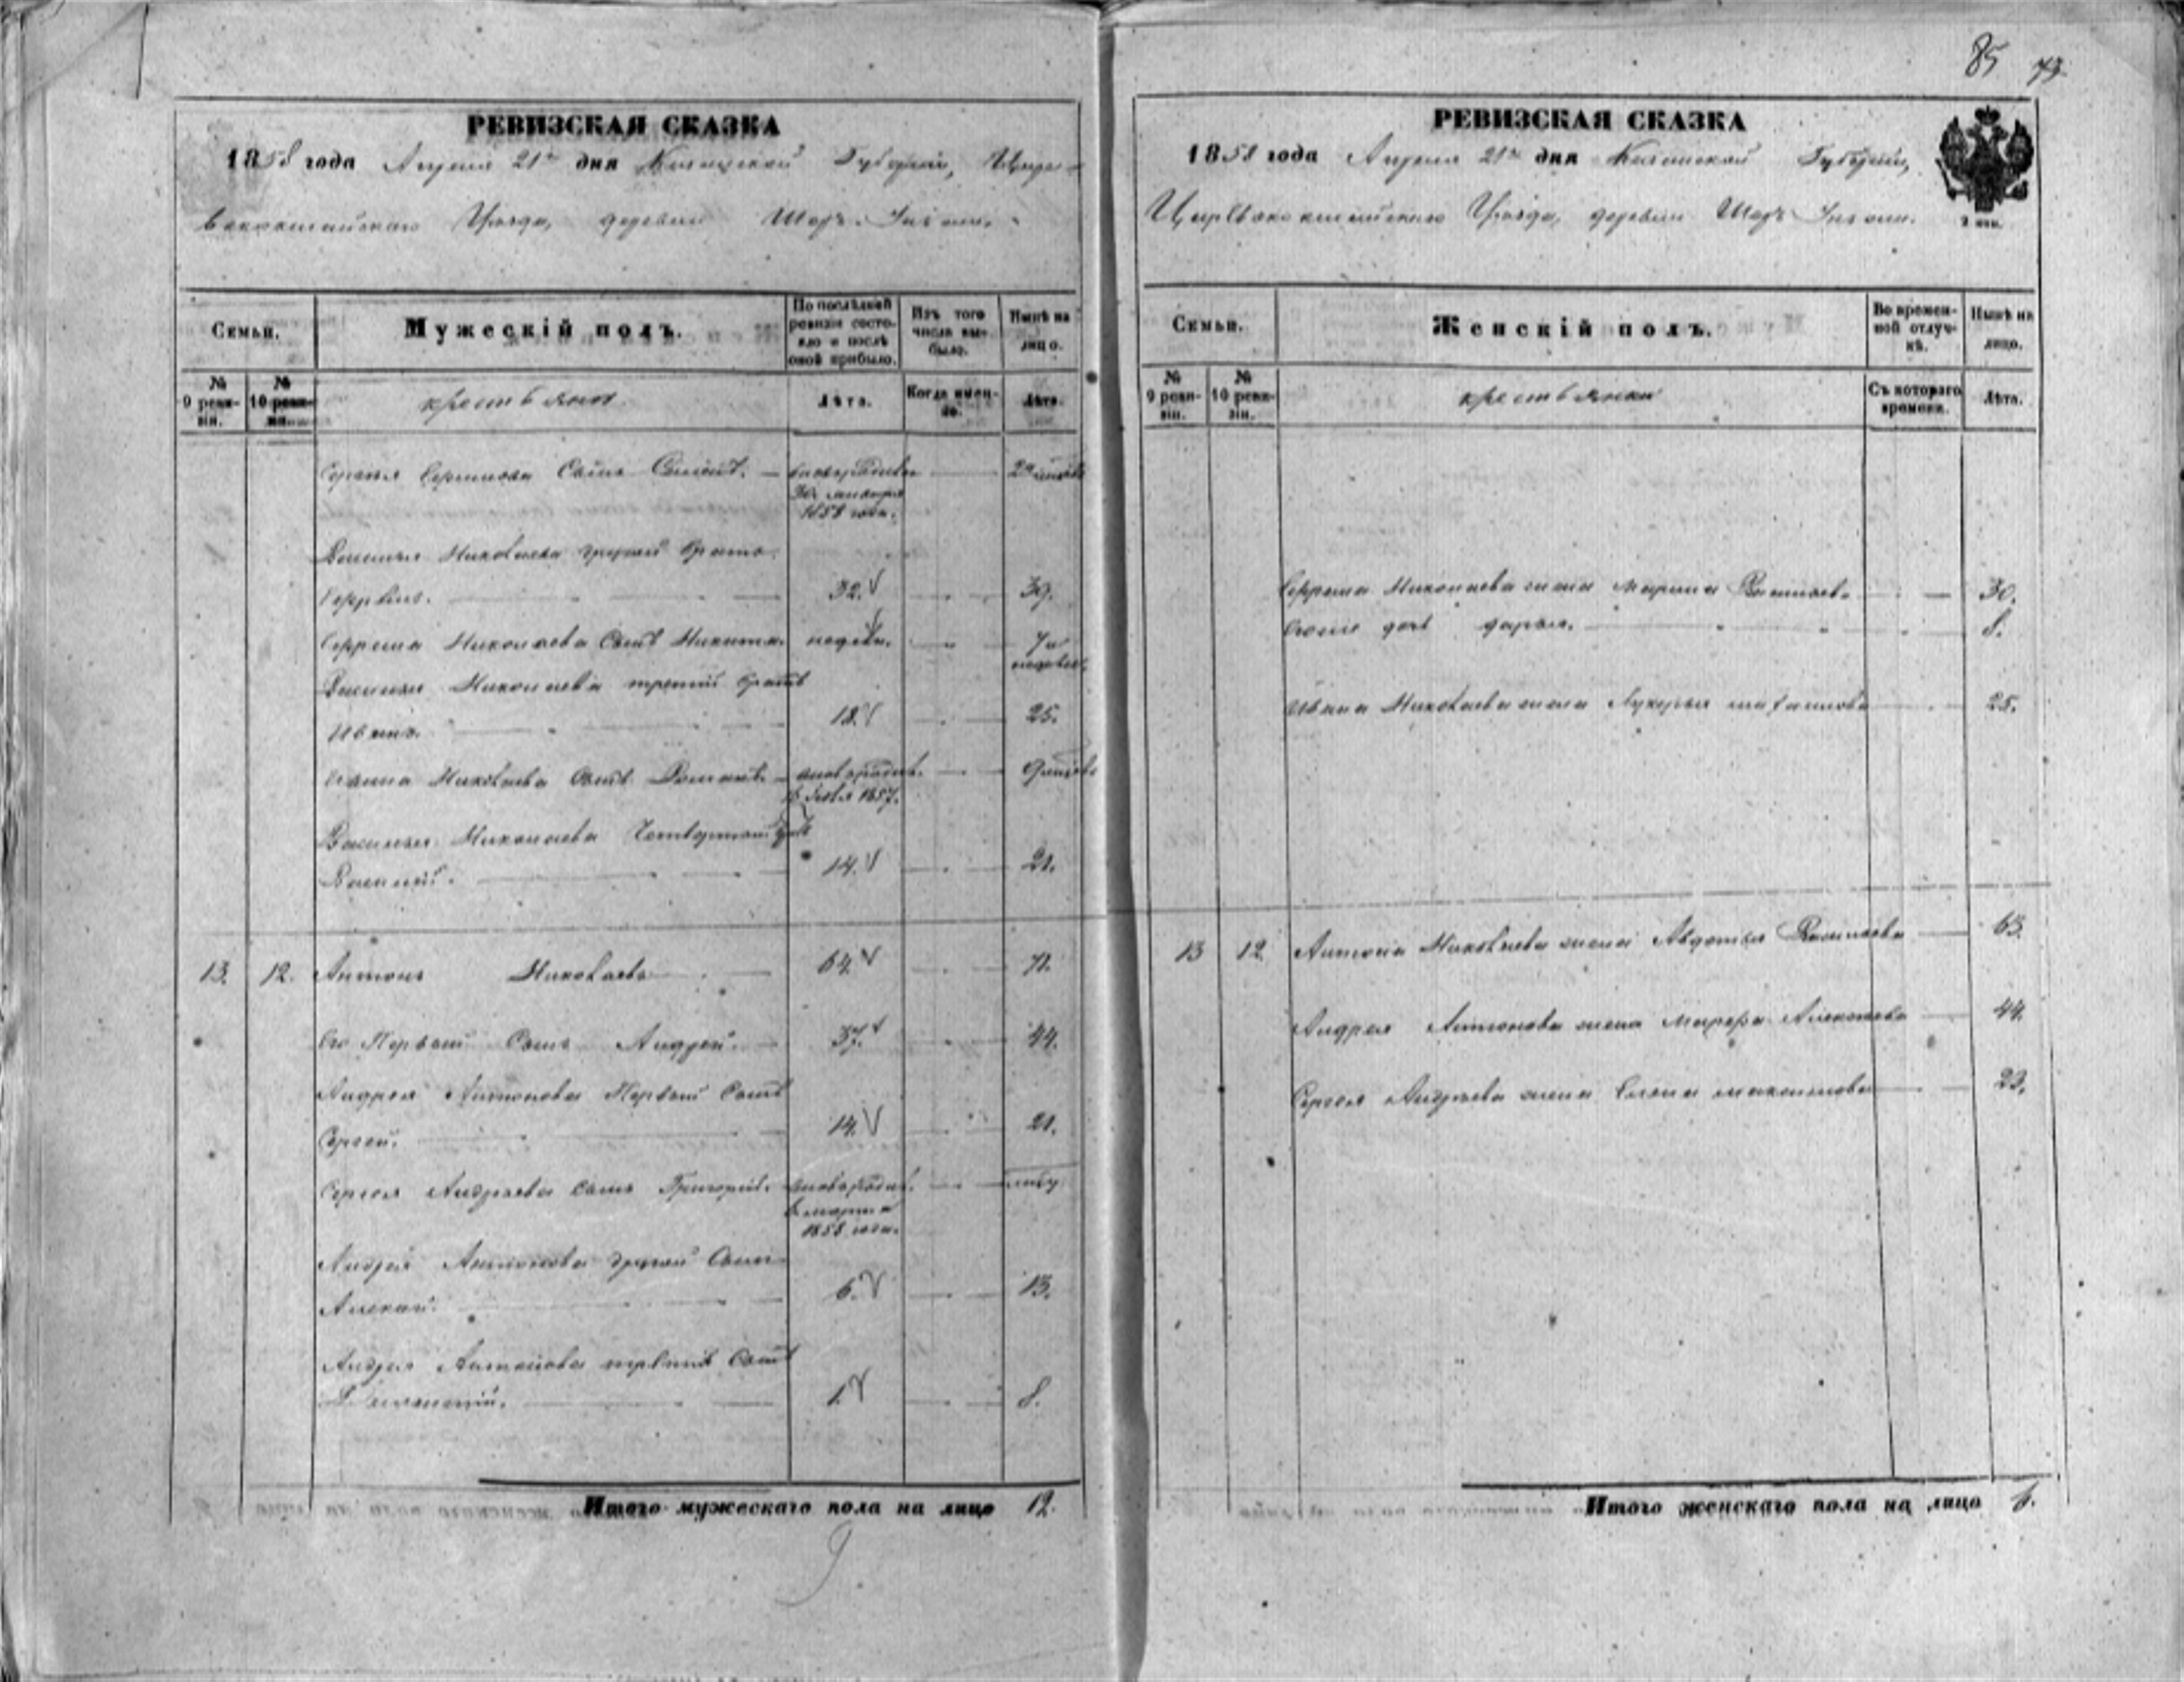 85 73.
РЕВИЗСКАЯ СКАЗКА
1858 года Апреля 21го дня Казанской Губернии, Царе-
вококшайскаго Уезда, деревни Шор
Семьи.
Мужескій полъ.
По послѣдней ревизіи состояло и послѣ оной прибыло.
Изъ того числа выбыло.
Нынѣ на лицо.
№ 9 ревизіи.
№ 10 ревизіи.
крестьяне
Лѣта.
Когда именно.
Лѣта.
Сергея Сынъ
1858 года.
Василья Николаева другой братъ
32. 39.
Николаева Сынъ Никита. недели.
Василья Николаева третий братъ
Иванъ. 18. 25.
Ивана Николаева Сынъ
1857.
Василья Николаева Четвертый братъ
Василий. 14. 21.
13. 12. Антонъ Николаевъ 64. 71.
Его Первый Сынъ Андрей. 37. 44.
Андрея Антонова Первый Сынъ
Сергей. 14. 21.
Сергея Андреева Сынъ Григорий.
марта
1858 года.
Андрея Антонова другой Сынъ
Алексей. 6. 13.
Андрея Антонова третий Сынъ
1. 8.
Итого мужескаго пола на лицо 12.
9
РЕВИЗСКАЯ СКАЗКА
1858 года Апреля 21го дня Казанской Губернии,
Царевококшайскаго Уезда, деревни Шор
2 коп.
Семьи.
Женскій полъ.
Во временной отлучкѣ.
Нынѣ на лицо.
№ 9 ревизіи.
№ 10 ревизіи.
крестьянки
Съ котораго времени.
Лѣта.
Николаева жена Марина Васильева 30.
дочь Дарья. 8.
Ивана Николаева жена Лукерья 25.
13 12. Антона Николаева жена Авдотья Васильева 63.
Андрея Антонова жена Марфа Алексеева 44.
Сергея Андреева жена Елена Максимова 23.
Итого женскаго пола на лицо 6.